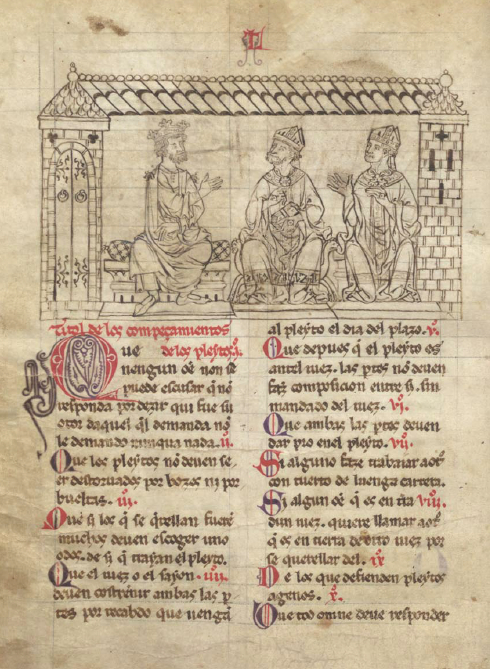 II
Titol de los compeçamientos
de los pleytos. i.
Que
nengun oe non se
puede escusar q̃ no
responda por dezir qui fue su
otor daquel q̃l demanda no
le demando nunqua nada. ii.
Que los pleytos no deven se
er destorvados por bozes ni por
bueltas. iii.
Que si los q̃ se q̃rellan fueré
muchos deven escoger uno
odos. de si q̃ trayan el pleyto.
Que el iuez o el sayon. iiii.
deven costrenir ambas las p
tes por recabdo que vengã
al pleyto el dia del plazo. v.
Que depues q̃ el pleyto es
antel iuez. las ptes no deven
faz composicion entre si. sin
mandado del iuez. vi.
Que ambas las ptes deven
dar pro en el pleyto. vii.
Si alguno faze trabaiar aotr
con tuerto de luenga carrera.
Si algun oe q̃ es en tr̃a viii.
dun iuez. quiere llamar aotr
q̃ es en tierra de otro iuez por
se querellar del. ix
De los que defienden pleytos
agenos. x.
Que tod omne deve responder